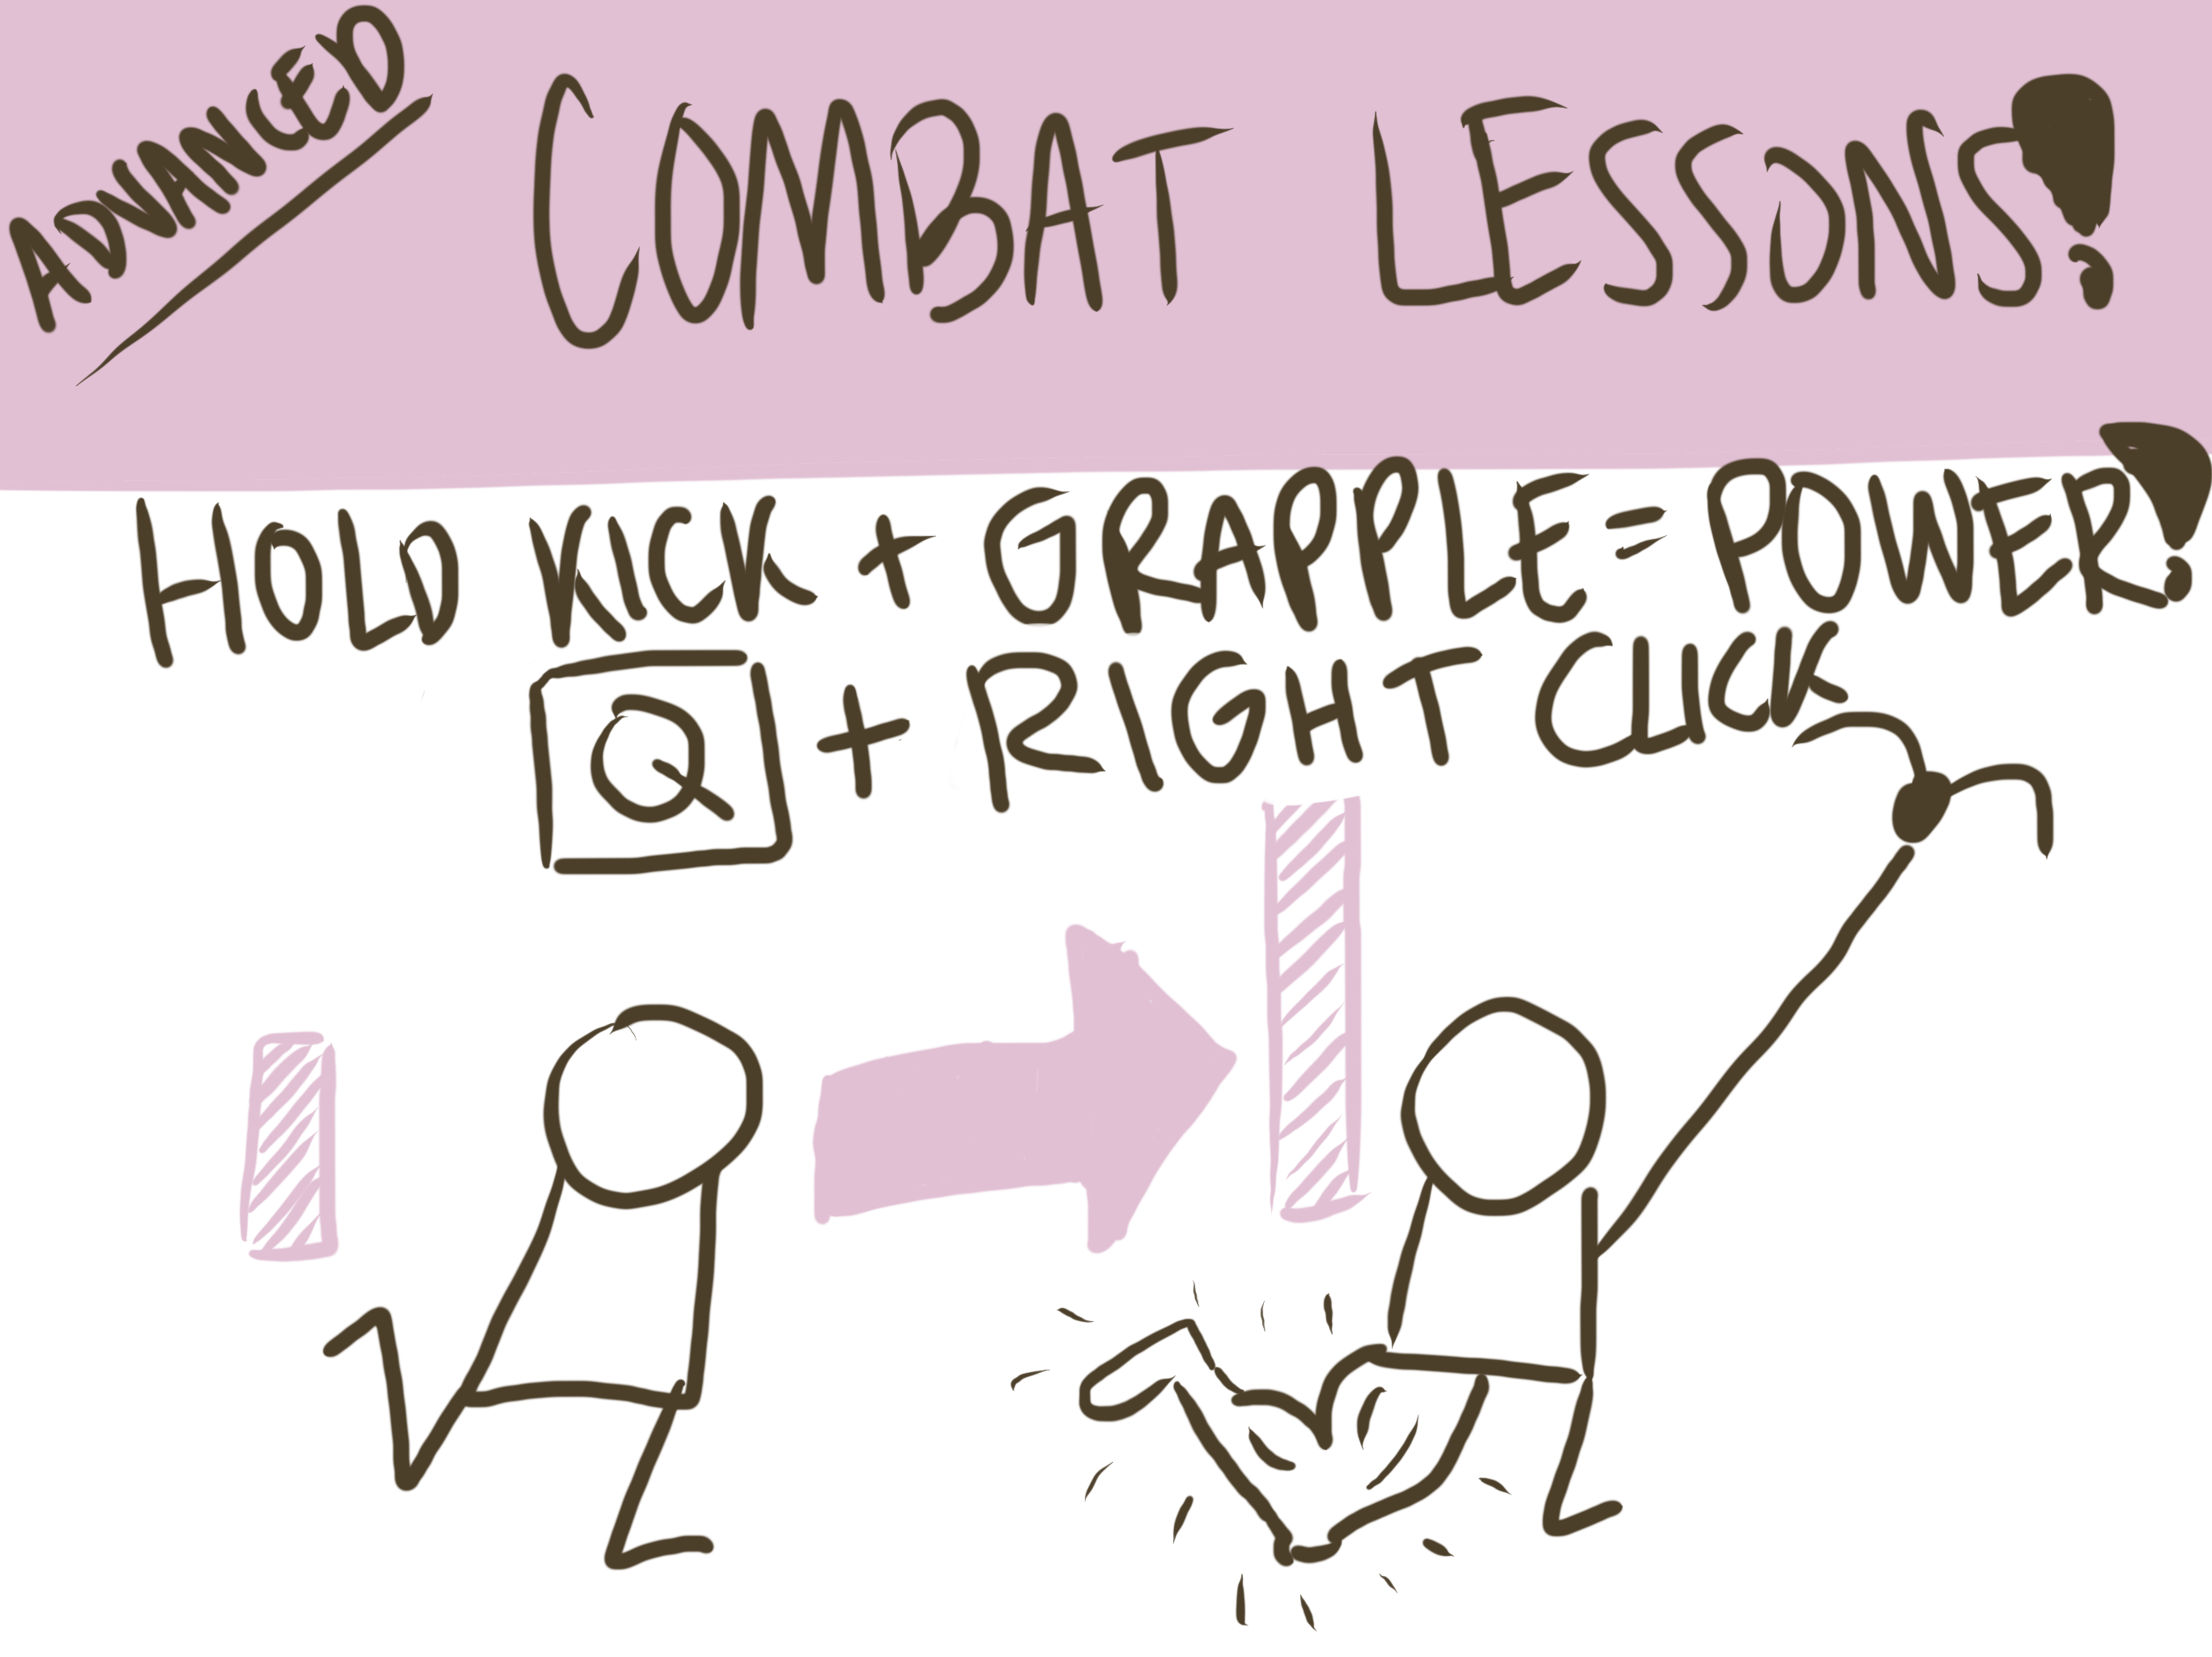 ADVANCED
COMBAT LESSONS!
HOLD KICK + GRAPPLE = POWER!
Q + RIGHT CLICK